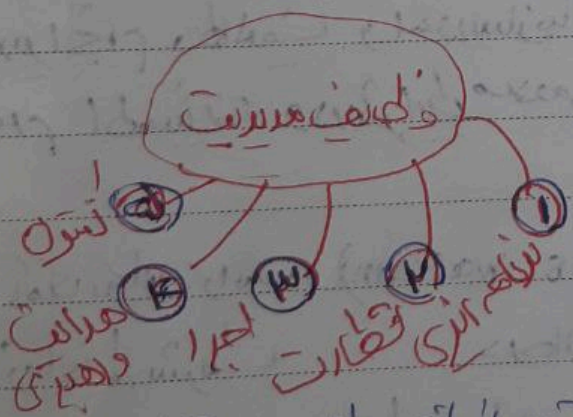 وظایف مدیریت
۱ برنامه ریزی
۲ نظارت
۳ اجرا
۴ هدایت و رهبری
۵